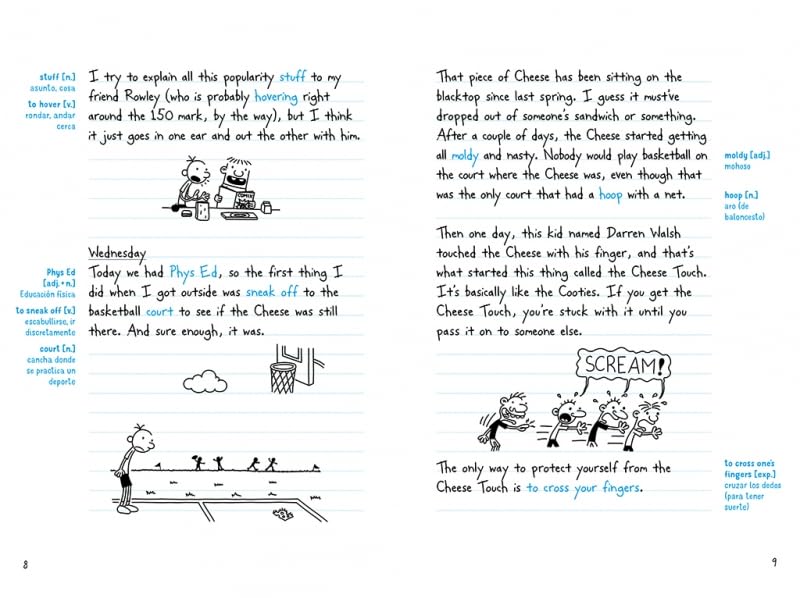 stuff [n.]
asunto, cosa
to hover [v.]
rondar, andar
cerca
I try to explain all this popularity stuff to my
friend Rowley (who is probably hovering right
around the 150 mark, by the way), but I think
it just goes in one ear and out the other with him.
Wednesday
Phys Ed
[adj. + n.]
Educación física
to sneak off [v.]
escabullirse, ir
discretamente
court [n.]
cancha donde
se practica un
deporte
Today we had Phys Ed, so the first thing I
did when I got outside was sneak off to the
basketball court to see if the Cheese was still
there. And sure enough, it was.
8
That piece of Cheese has been sitting on the
blacktop since last spring. I guess it must've
dropped out of someone's sandwich or something.
After a couple of days, the Cheese started getting
all moldy and nasty. Nobody would play basketball on
the court where the Cheese was, even though that
was the only court that had a hoop with a net.
moldy [adj.]
mohoso
hoop [n.]
aro (de
baloncesto)
Then one day, this kid named Darren Walsh
touched the Cheese with his finger, and that's
what started this thing called the Cheese Touch.
It's basically like the Cooties. If you get the
Cheese Touch, you're stuck with it until you
pass it on to someone else.
SCREAM!
The only way to protect yourself from the
Cheese Touch is to cross your fingers.
to cross one's
fingers [exp.]
cruzar los dedos
(para tener
suerte)
9